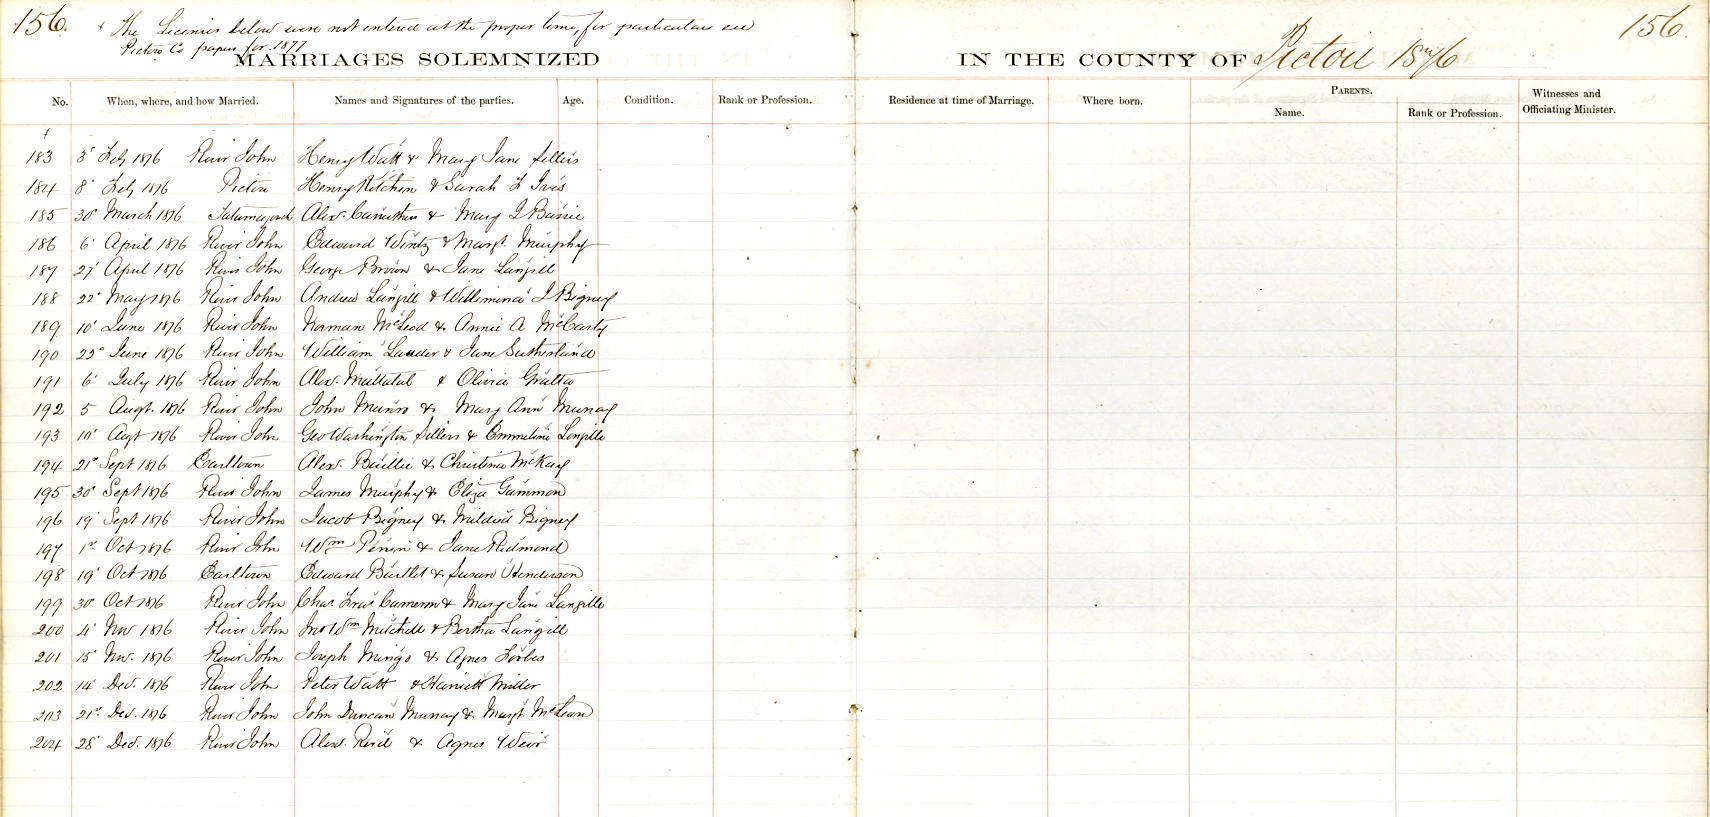 156.
The Licenses below were not entered at the proper time, for particulars see
Pictou Co papers for 1877
MARRIAGES SOLEMNIZED
IN THE COUNTY OF Pictou 1876
156.
No. When, where, and how Married. Names and Signatures of the parties. Age. Condition. Rank or Profession. Residence at time of Marriage. Where born. PARENTS. Name. Rank or Profession. Witnesses and Officiating Minister.
183 3 Feby 1876 River John Henry Watt & Mary Jane Sellers
184 8 Feby 1876 Pictou Henry Ritchin & Sarah F Ives
185 30 March 1876 Tatamagouch Alex. Carruthers & Mary J Bassie
186 6 April 1876 River John Edward Wentz & Margt. Murphy
187 27 April 1876 River John George Brown & Jane Langill
188 22 May 1876 River John Andrew Langill & Willimina J Bigney
189 10 June 1876 River John Norman McLeod & Annie A McCarty
190 22 June 1876 River John William Lauder & Jane Sutherland
191 6 July 1876 River John Alex. Mattatal & Olivia Gratto
192 5 Augt. 1876 River John John Munro & Mary Ann Murray
193 10 Augt 1876 River John Geo Washington Sellers & Emmeline Langille
194 21 Sept 1876 Earltown Alex. Baillie & Christina McKay
195 30 Sept 1876 River John James Murphy & Eliza Gammon
196 19 Sept 1876 River John Jacob Bigney & Mildred Bigney
197 1st Oct 1876 River John Wm Perrin & Jane Redmond
198 19 Oct 1876 Earltown Edward Bartlet & Susan Henderson
199 30 Oct 1876 River John Chas Fras Cameron & Mary Jane Langille
200 4 Nov 1876 River John Jno Wm Mitchell & Bertha Langill
201 15 Nov. 1876 River John Joseph Mingo & Agnes Forbes
202 14 Dec. 1876 River John Peter Watt & Harriett Miller
203 21st Dec. 1876 River John John Duncan Murray & Margt. McLean
204 28 Dec. 1876 River John Alex. Reid & Agnes Weir